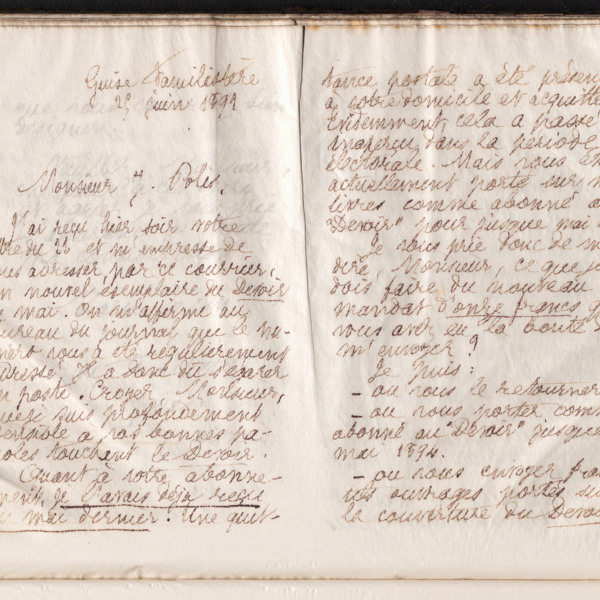 Guise Familistère
25 juin 1891
Monsieur J. Poles,
J'ai reçu hier soir votre
ttre du 22 et m'empresse de
ous adresser, par ce courrier,
n nouvel exemplaire du Devoir
e mai. On m'affirme au
ureau du journal que le nu-
méro vous a été régulièrement
dressé. Il a donc dû s'égarer
n poste. Croyez, Monsieur,
que je suis profondément
ensible à vos bonnes pa-
oles touchant le Devoir.
Quant à votre abonne-
ment, je l'avais déjà reçu
n mai dernier. Une quit-
tance postale a été présen
à votre domicile et acquitté
Evidemment, cela a passé
inaperçu dans la période
électorale. Mais vous êt
actuellement porté sur n
livres comme abonné a
"Devoir" pour jusque mai
Je vous prie donc de m
dire, Monsieur, ce que j
dois faire du nouveau
mandat d'onze francs q
vous avez eu la bonté d
m'envoyer?
Je puis:
- ou vous le retourner
- ou vous porter comm
abonné au "Devoir" jusque
mai 1894.
- ou vous envoyer
ouvrages portés su
la couverture du Devoi